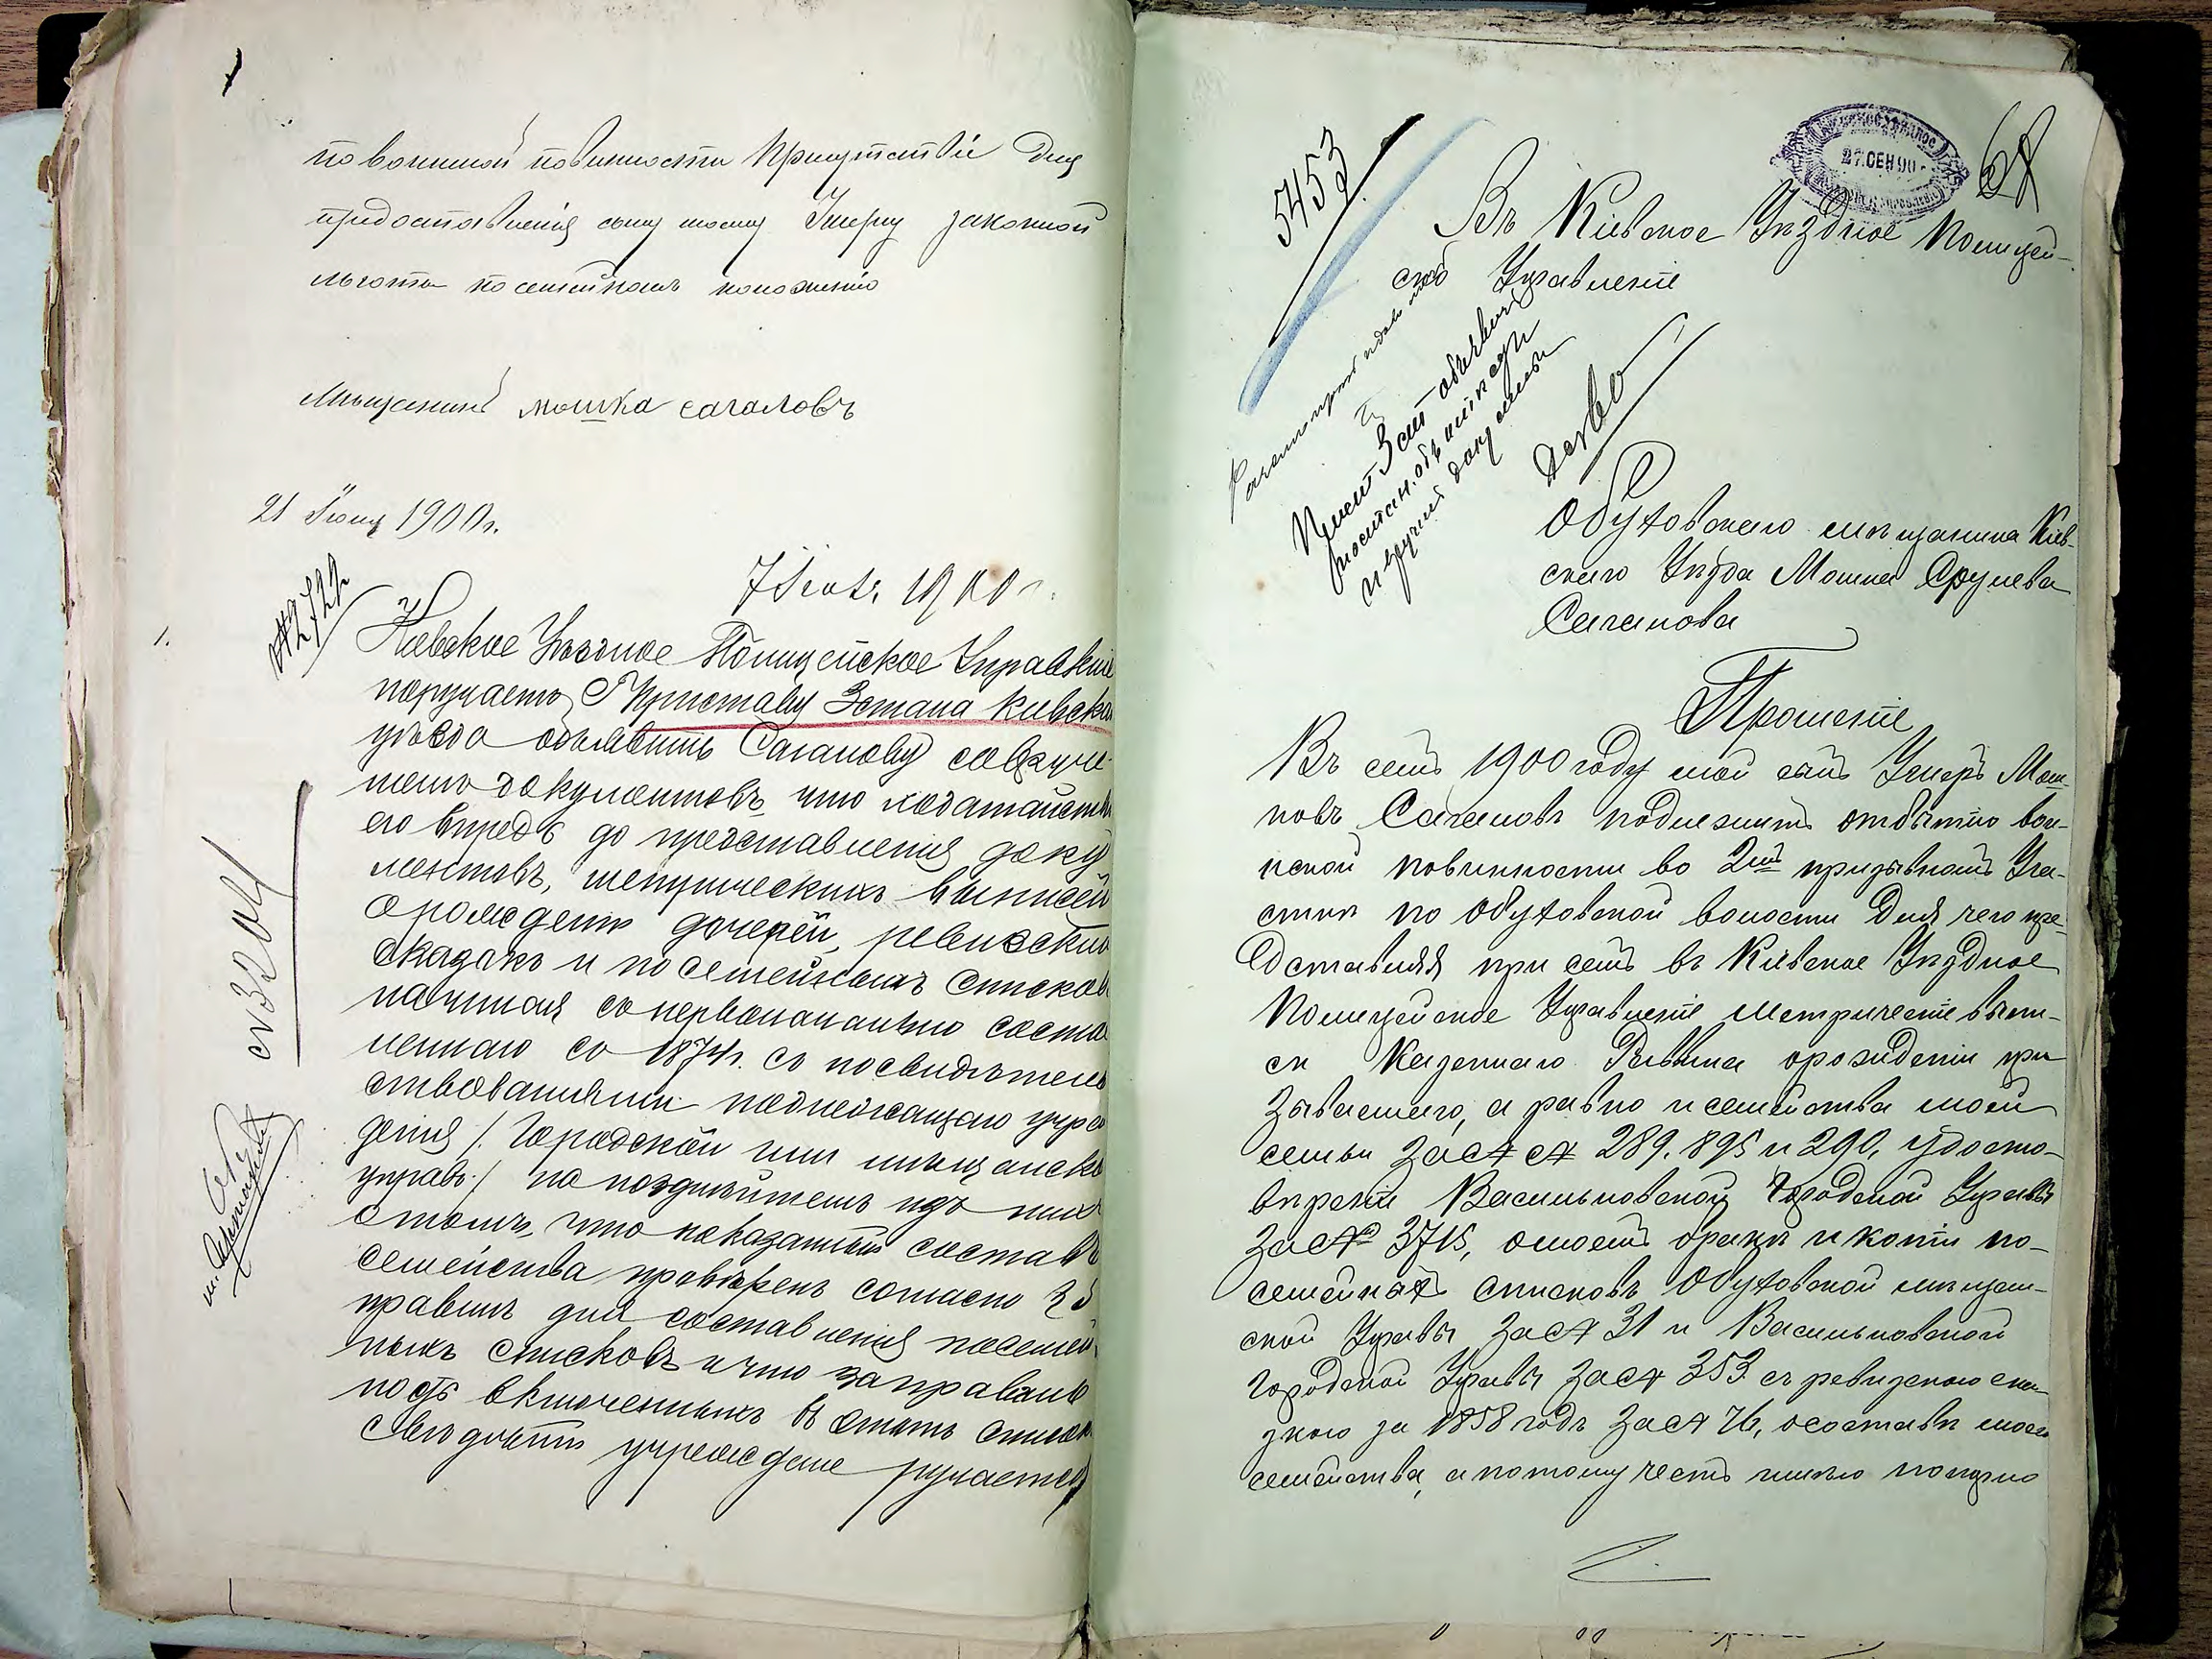 по воинской повинности Присутствіе для
предоставленія сыну моему Умеру законной
льготы по семейному положенію
Мѣщанинъ мошка сагаловъ
21 Іюня 1900 г.
1900 г.
1.
Кіевское Уѣздное Полицейское Управленіе
поручаетъ Г Приставу 3 стана Кіевска
уѣзда объявить Сагалову с вруче-
ніемъ документовъ что ходатайств
его впредь до представленія доку
ментовъ, метрическихъ выписей
о рожденіи дочерей, ревизскихъ
сказокъ и посемейныхъ списковъ
начиная съ первоначально состав
леннаго съ 1874 г. съ посвидѣтель
ствованіями надлежащаго учре
денія /. Городской или мѣщанской
управ./ на позднѣйшемъ изъ нихъ
о томъ, что показанный составъ
семейства провѣренъ согласно
правилъ для составленія посемей
ныхъ списковъ и что за правиль
ность включенныхъ въ этотъ списокъ
свѣдѣній учрежденіе ручается
№ 3204
5453
27. СЕН 900
68
Въ Кіевское Уѣздное Полицей-
ское Управленіе
Обуховскаго мѣщанина Кіев-
скаго Уѣзда Мошка Срулева
Сагалова
Прошеніе
Въ семъ 1900 году мой сынъ Умеръ Мош-
ковъ Сагаловъ подлежитъ отбытію вои-
нской повинности во 2мъ призывномъ Уча-
сткѣ по Обуховской волости для чего пре-
доставляя при семъ въ Кіевское Уѣздное
Полицейское Управленіе метрическіе выпи-
си Казеннаго Раввина о рожденіи при
зываемаго, а равно и семейства моей
семьи за №№ 289. 895 и 290, удосто-
вѣреніе Васильковской Городской Управы
за № 3715, о моемъ бракѣ и копіи по-
семейныхъ списковъ Обуховской мѣщан-
ской Управы за № 31 и Васильковской
Городской Управы за № 353 съ ревизскою ска-
зкою за 1858 годъ за № 76, о составѣ моего
семейства, а потому честь имѣю покорно